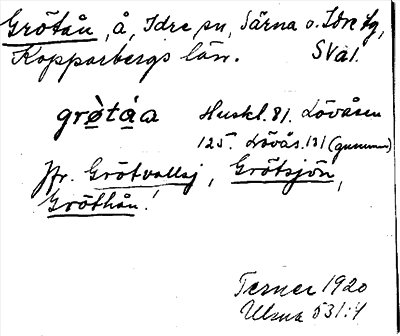 Grötån, å, Idre sn, Särna o. Idre tg,
Kopparbergs län. SVal.
grö̀tàa Huskl. 81. Lövåsen
125. Lövås. 131 (gumman)
Jfr. Grötvallsj, Grötsjön,
Gröthån!
Terner 1920
Ulma 531:4